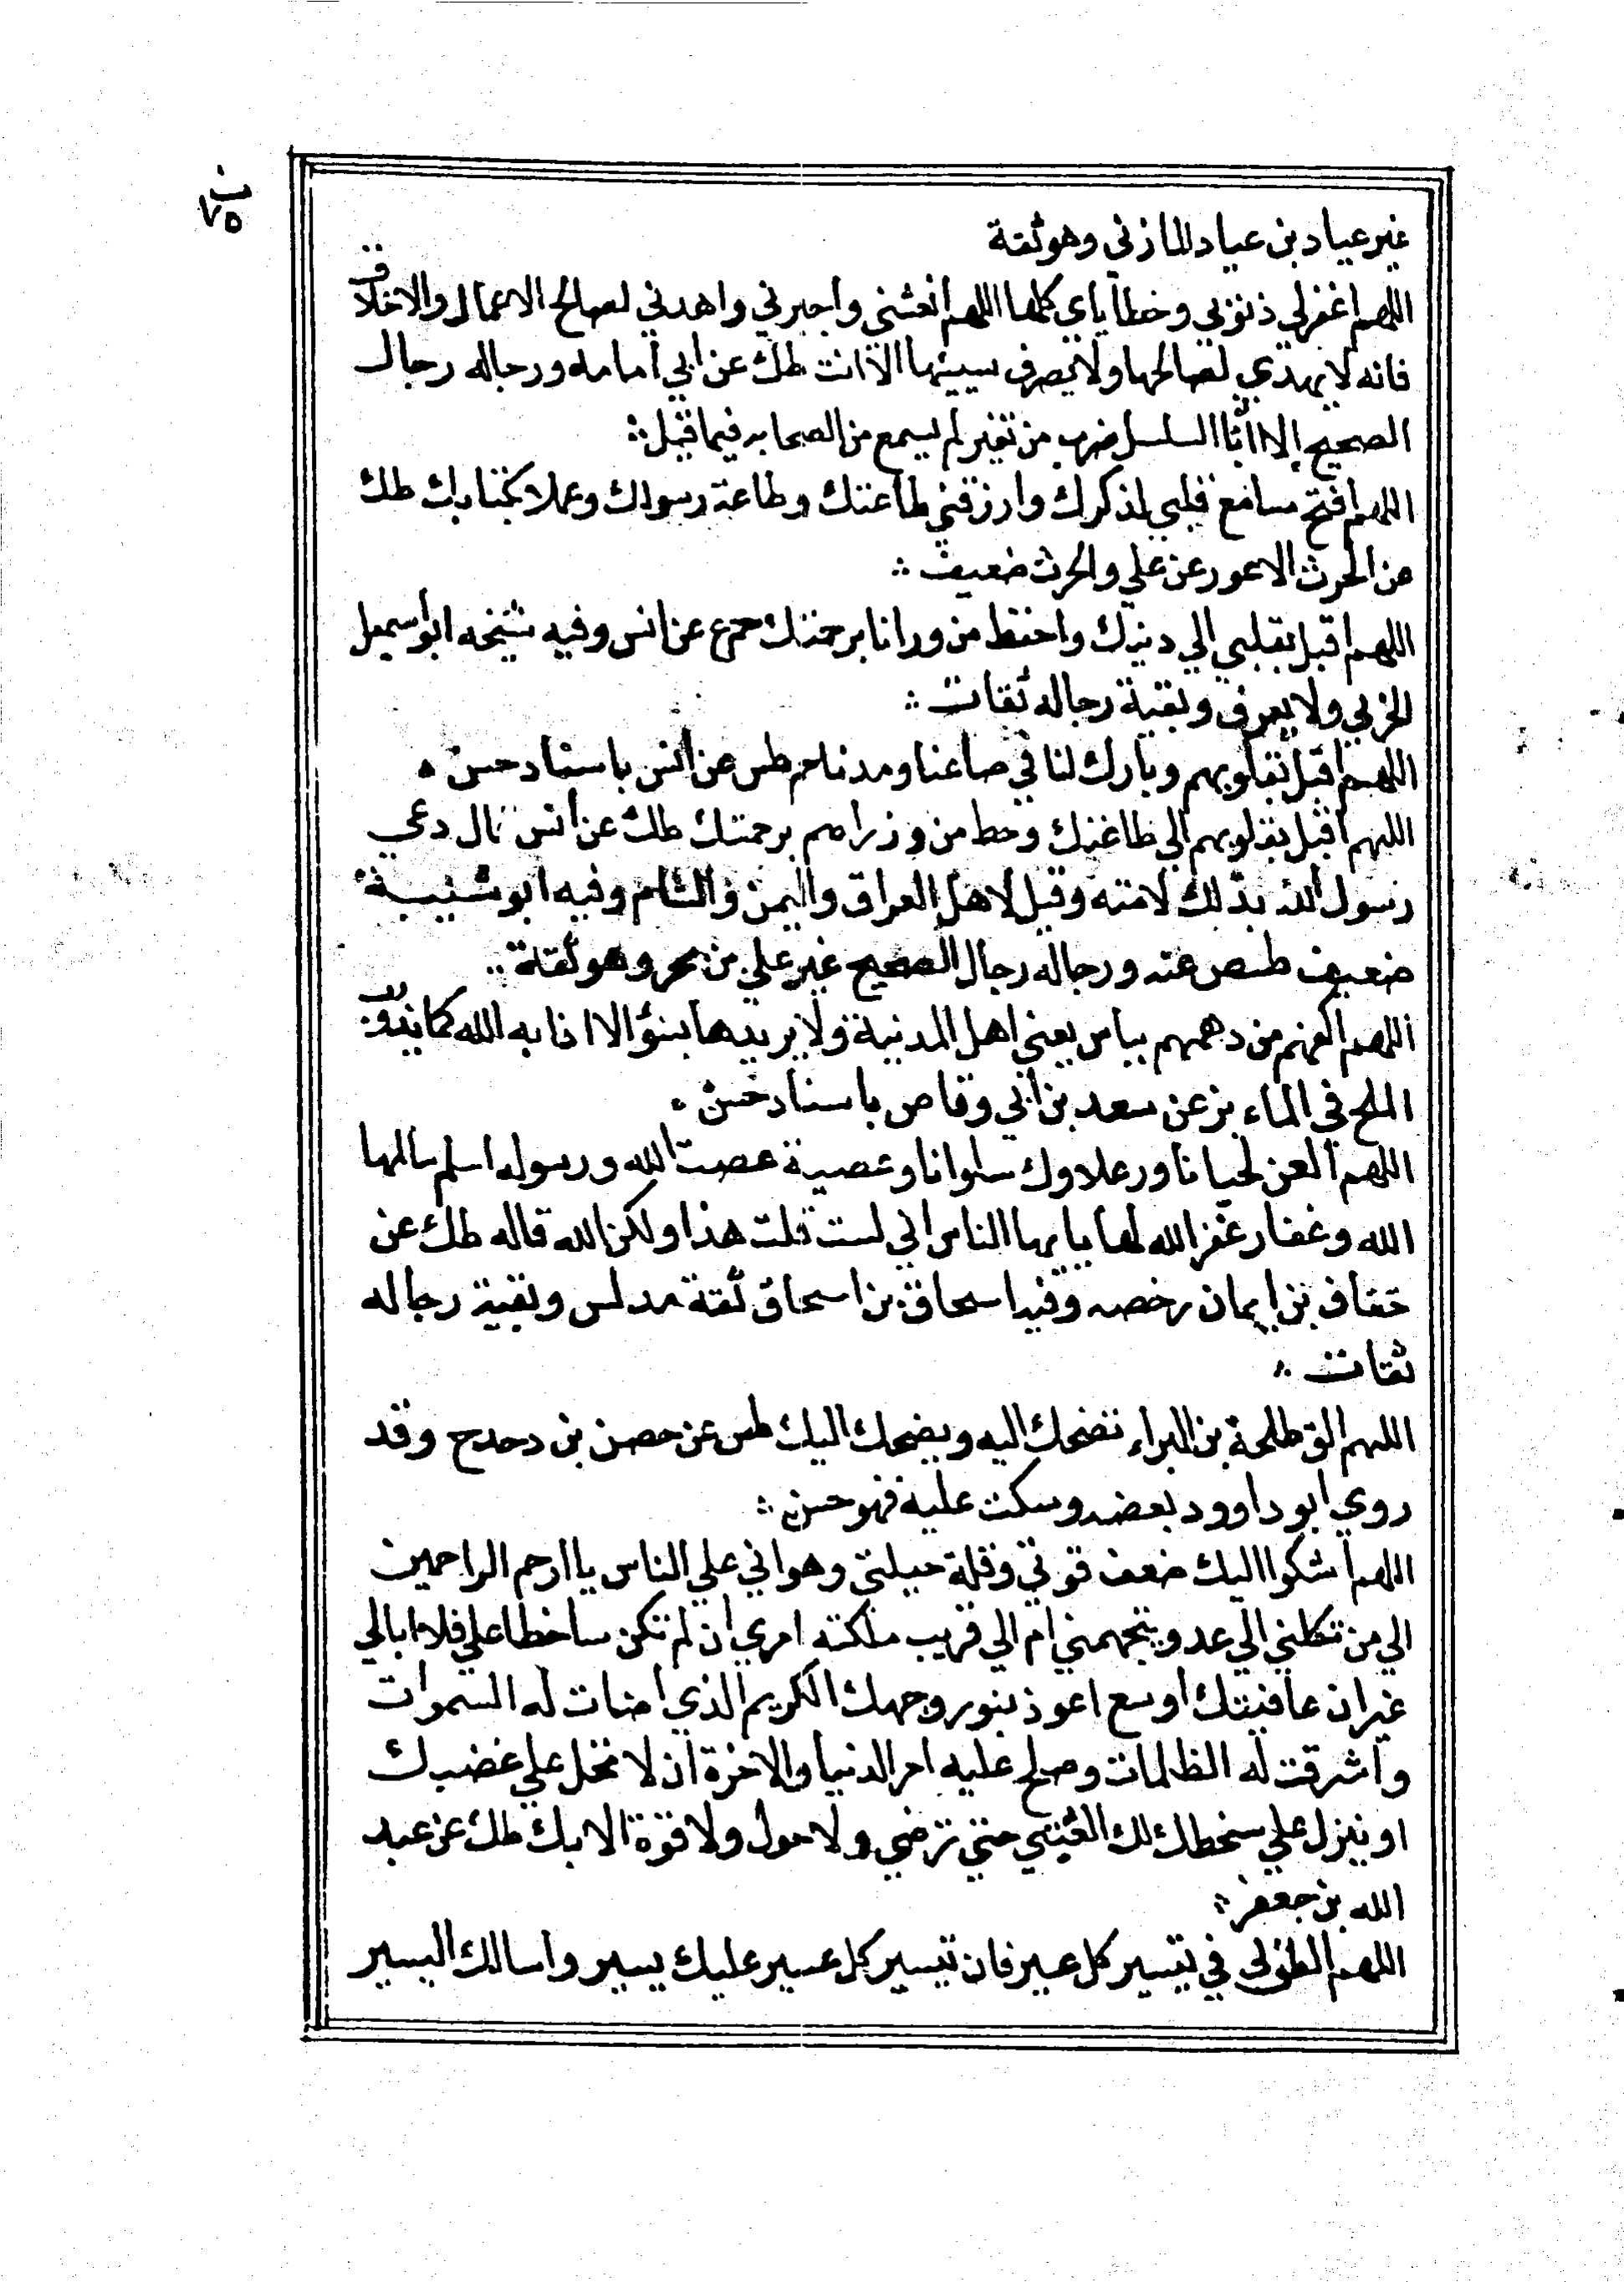 ٧٥
غير عباد بن عباد المازني وهو ثقة
اللهم اغفر لي ذنوبي وخطاياي كلها اللهم انعشني واجبرني واهدني لصالح الاعمال والاخلاق
فانه لا يهدي لصالحها ولا يصرف سيئها الا انت طك عن ابي امامه ورجاله رجال
الصحيح الا ابا السلسل ضرب من نقير لم يسمع من الصحابه فيما قيل
اللهم افتح مسامع قلبي لذكرك وارزقني طاعتك وطاعة رسولك وعملا بكتابك طك
عن الحرث الاعور عن علي والحرث ضعيف
اللهم اقبل بقلبي الي دينك واحفظ من ورانا برحمتك ع عن انس وفيه شيخه ابو اسمعيل
ولا يعرف وبقية رجاله ثقات
اللهم اقبل بقلوبهم وبارك لنا في صاعنا ومدنا حم طس عن انس باسناد حسن
اللهم اقبل بقلوبهم الي طاعتك وحط من وزراهم برحمتك طك عن انس قال دعي
رسول الله بذلك لامته وقيل لاهل العراق واليمن والشام وفيه ابو شيبة
ضعيف طسص عنه ورجاله رجال الصحيح غير علي بن بحر وهو ثقة
اللهم اكفهم من دهمهم بباس يعني اهل المدينة ولا يريدها بسؤ الا اذابه الله كما يذوب
الملح في الماء بز عن سعد بن ابي وقاص باسناد حسن
اللهم العن لحيانا ورعلا وذكوانا وعصية عصت الله ورسوله اسلم سالمها
الله وغفار غفر الله لها يا يها الناس اني لست قلت هذا ولكن الله قاله طك عن
خفاف بن ايمان رخصه وفيه اسحاق بن اسحاق ثقة مدلس وبقية رجاله
ثقات
اللهم الق طلحة بن البراء تضحك اليه ويضحك اليك طس عن حصن بن دحدح وقد
روي ابو داوود بعضه وسكت عليه فهو حسن
اللهم اشكوا اليك ضعف قوتي وقلة حيلتي وهواني علي الناس يا ارحم الراحمين
الي من تكلني الي عدو يتجهمني ام الي قريب ملكته امري ان لم تكن ساخطا علي فلا ابالي
غير ان عافيتك اوسع اعوذ بنور وجهك الكريم الذي اضات له السموات
واشرقت له الظلمات وصلح عليه امر الدنيا والاخرة ان لا تحل علي غضبك
او ينزل علي سخطك لك العتبي حتي ترضي ولا حول ولا قوة الا بك طك عن عبد
الله بن جعفر
اللهم الطف لي في تيسير كل عسير فان تيسير كل عسير عليك يسير واسالك اليسير